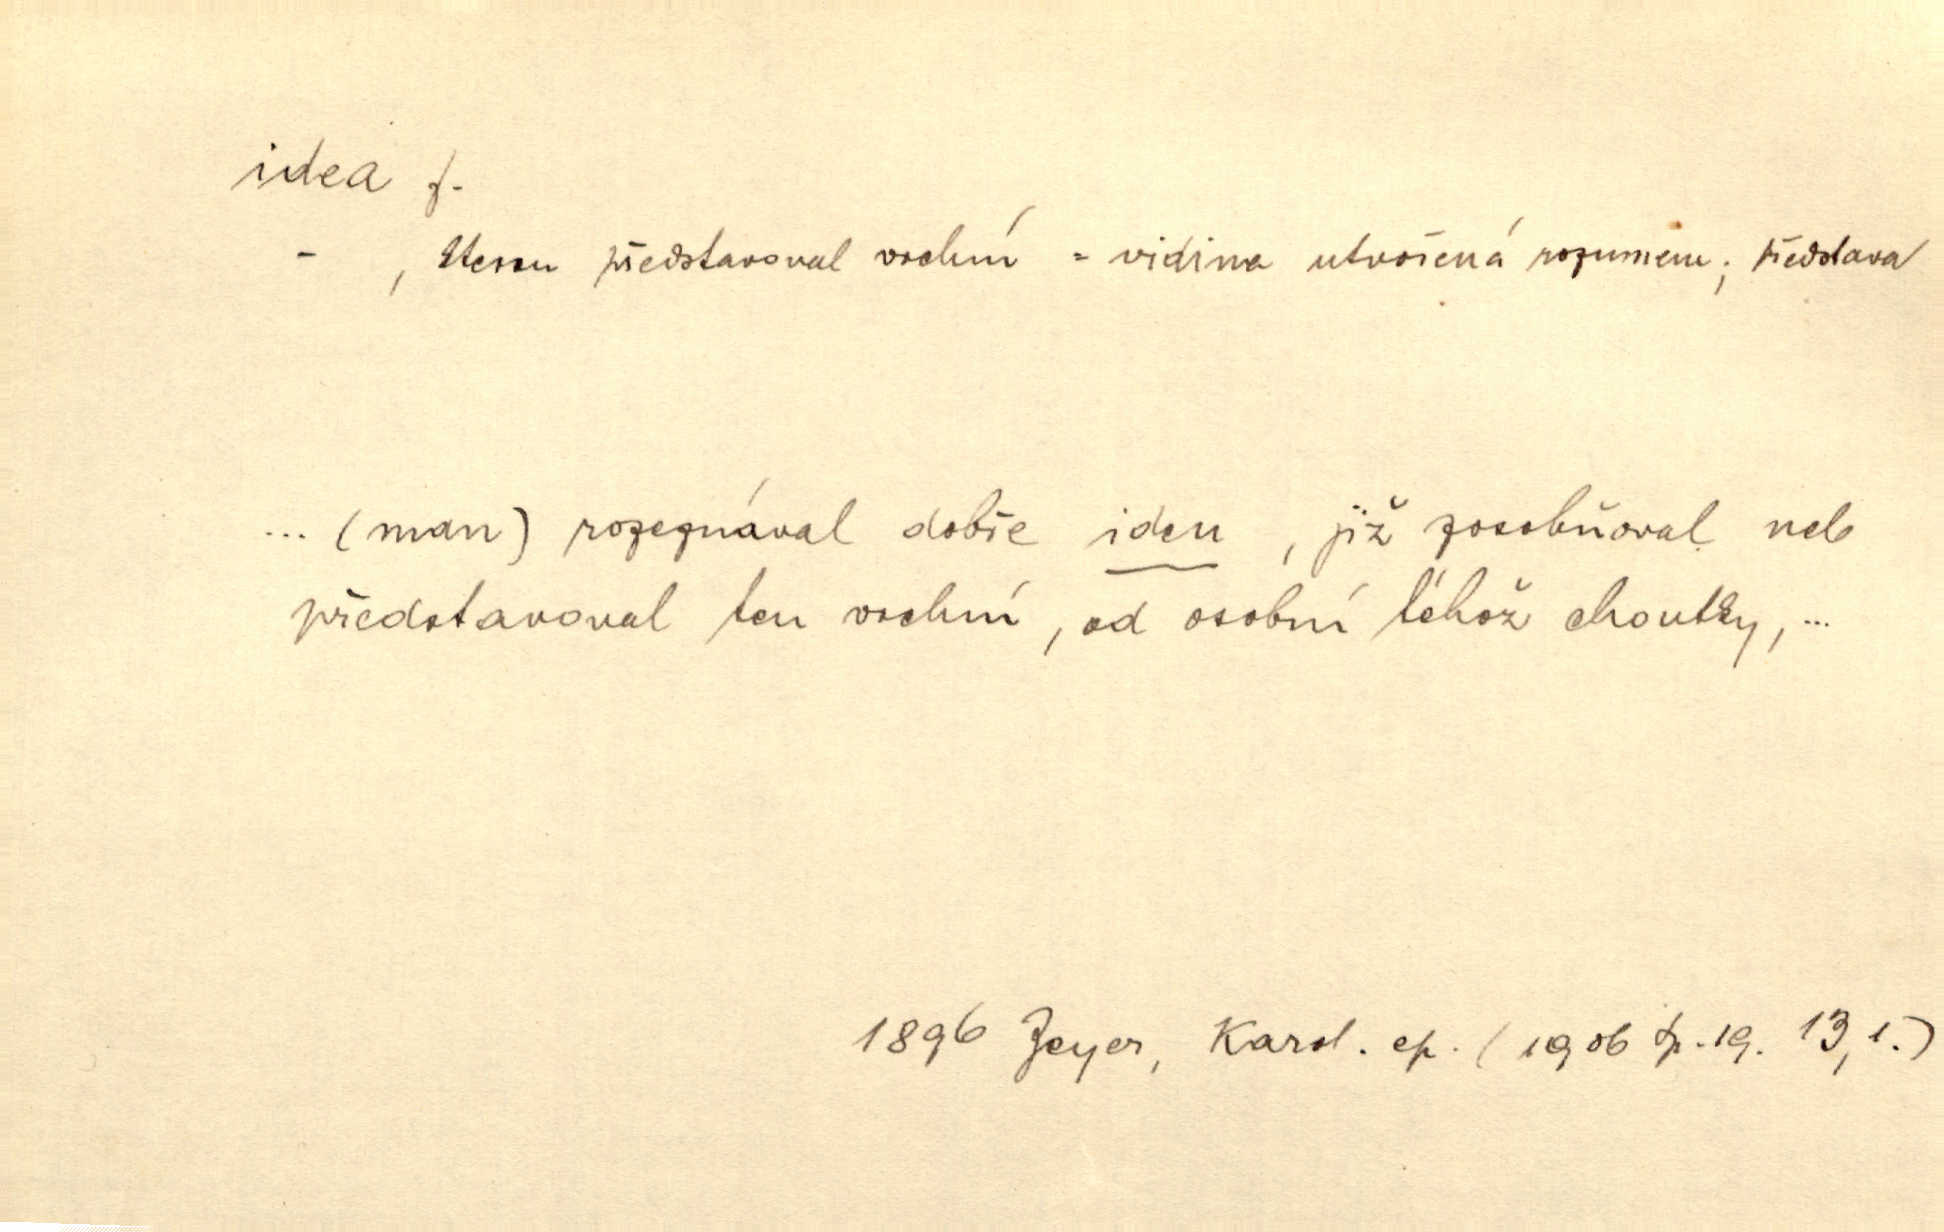 idea f.
- , kterou představoval vrchní = vidina utvořená rozumem; představa
... (man) rozeznával dobře ideu, již zosobňoval neb
představoval ten vrchní, od osobní téhož choutky, ...
1896 Zeyer, Karol. ep. (1906 sp. 19. 13,1.)